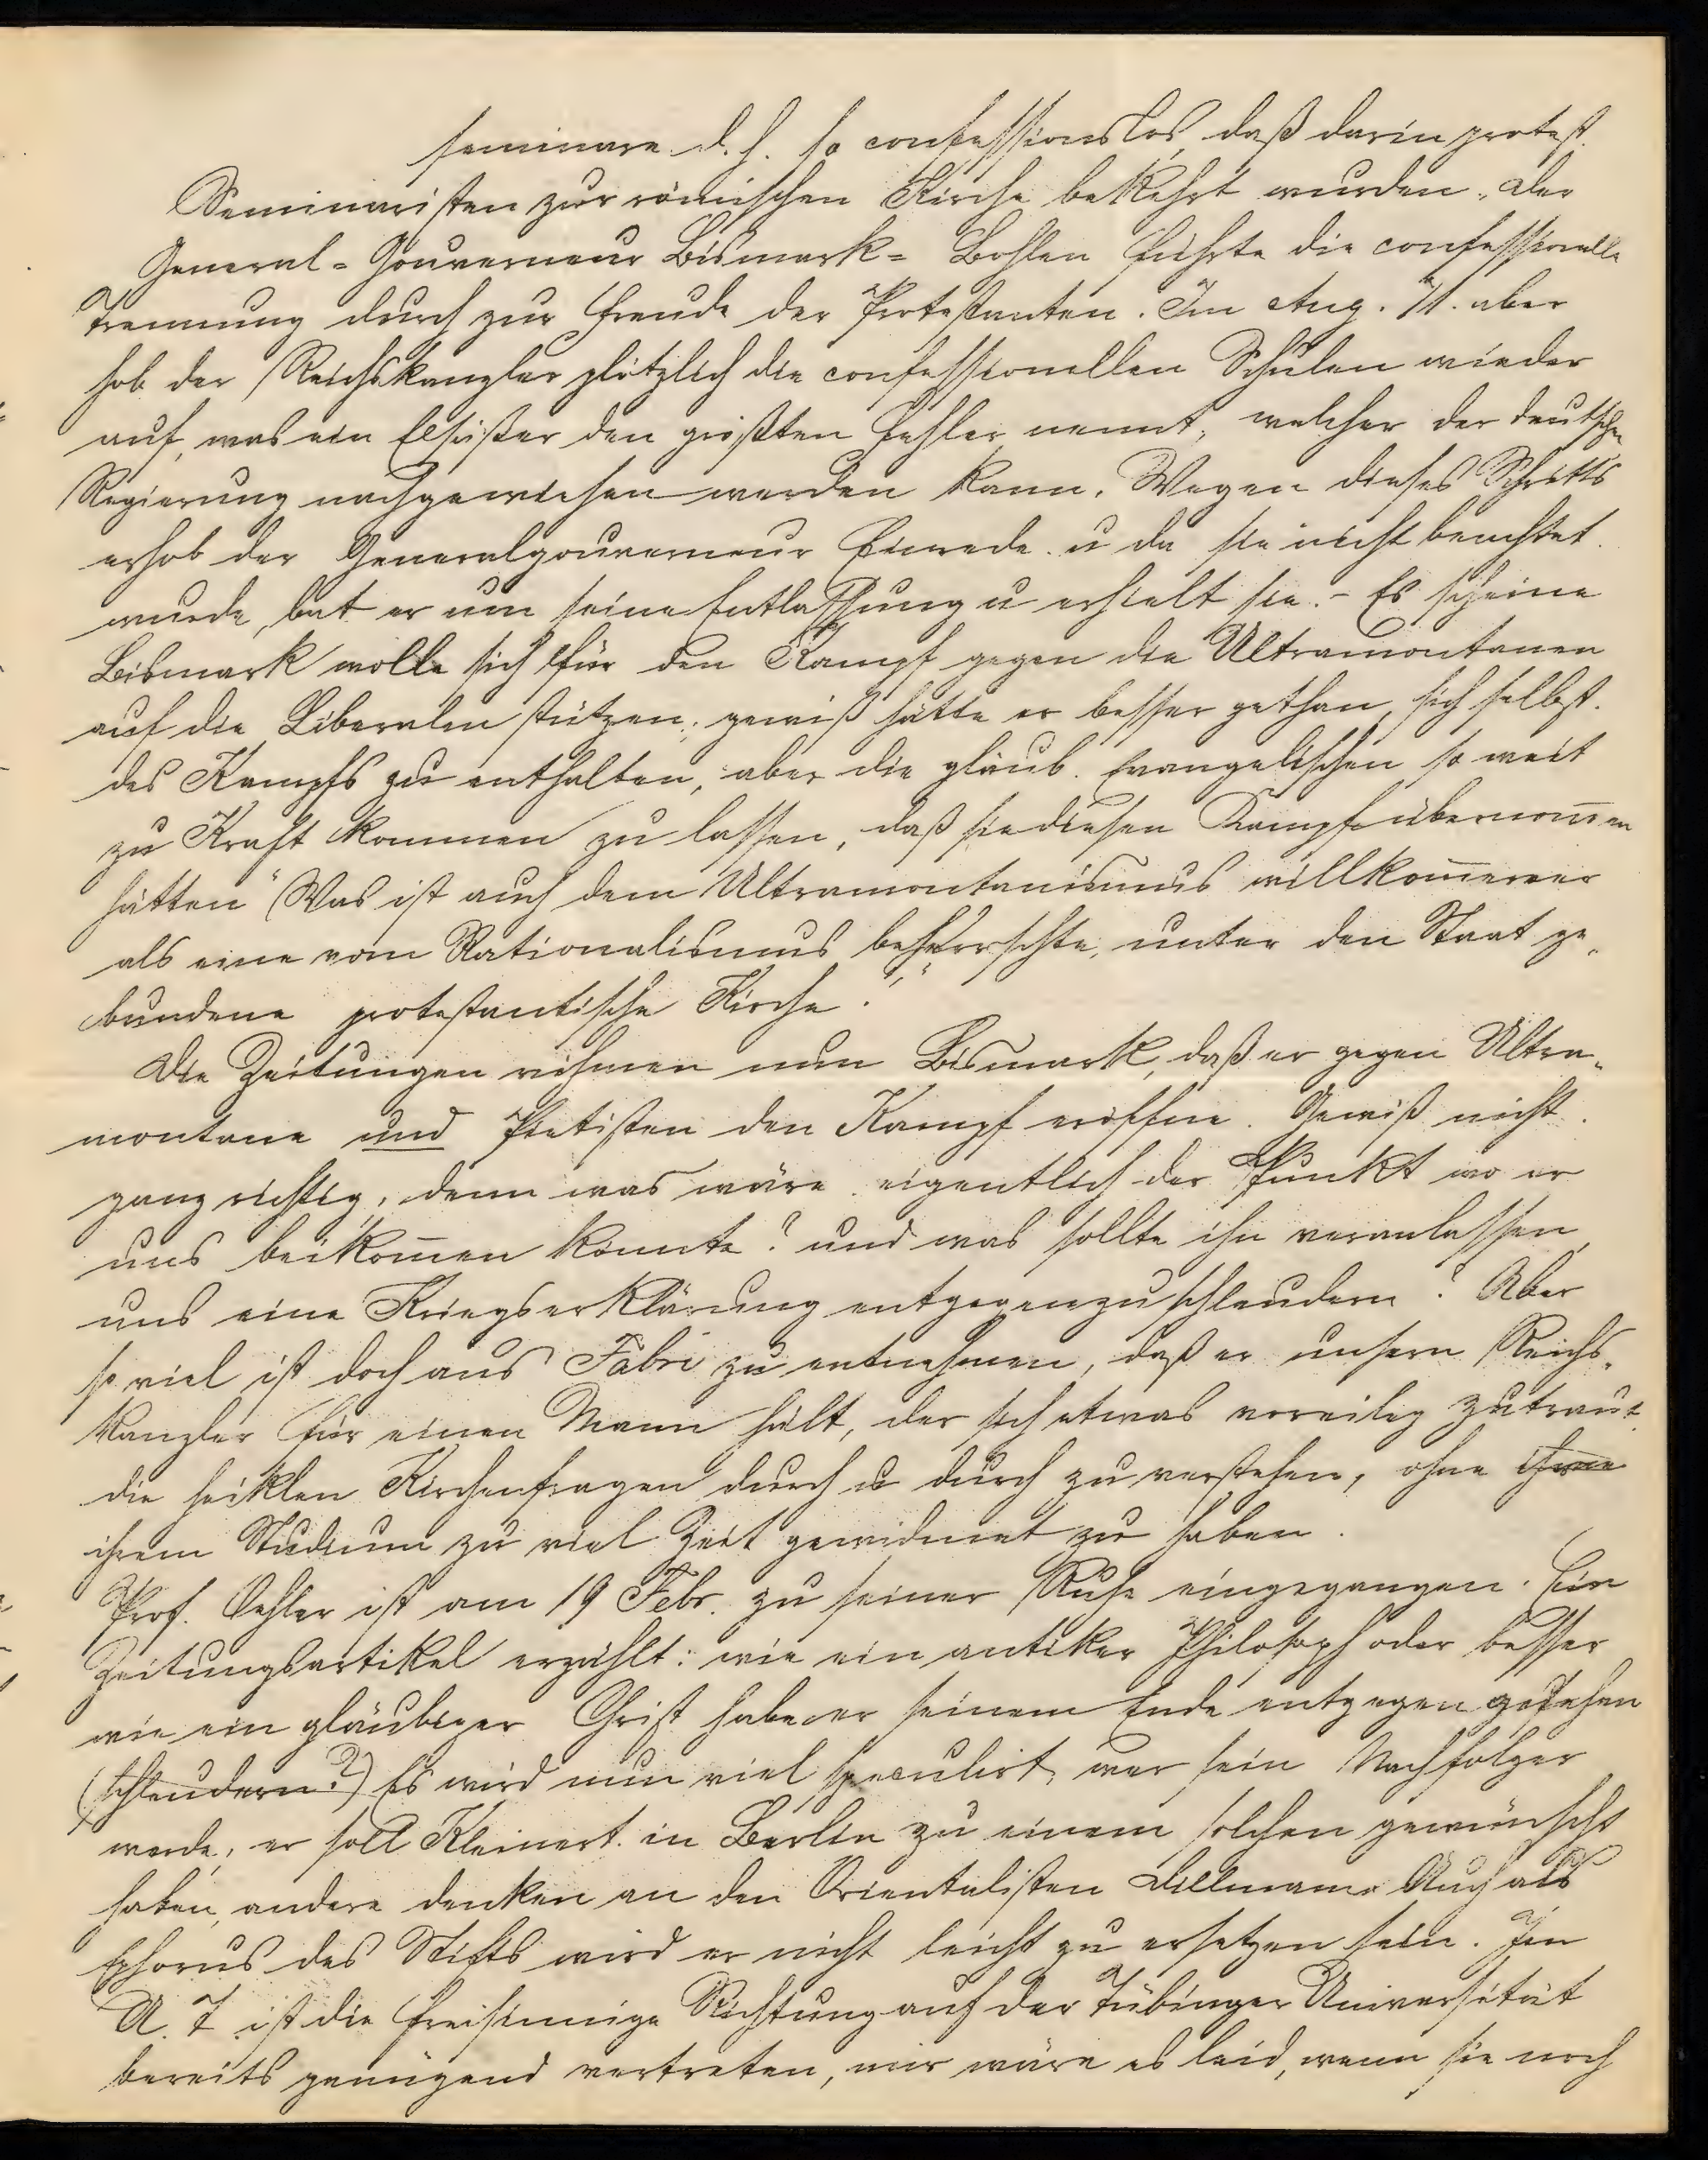 seminare d. h. so confessionslos, daß darin protest.
Seminaristen zur römischen Kirche bekehrt wurden. Der
General-Gouverneur Bismark-Bohlen führte die confessionelle
Trennung durch zur Freude der Protestanten. Im Aug. 71. aber
hob der Reichskanzler plötzlich die confessionellen Schulen wieder
auf, was ein Elsäßer den größten Fehler nennt, welcher der deutschen
Regierung nachgewiesen werden kann. Wegen dieses Schritts
erhob der Generalgouverneur Einrede u da sie nicht beachtet
wurde, bat er um seine Entlassung u erhielt sie. - Es scheine
Bismark wolle sich für den Kampf gegen die Ultramontanen
auf die Liberalen stützen; gewiß hätte er besser gethan, sich selbst
des Kampfs zu enthalten, aber die gläub. Evangelischen so weit
zu Kraft kommen zu lassen, daß sie diesen Kampf übernom̅en
hätten "Was ist auch dem Ultramontanismus willkom̅ener
als eine vom Rationalismus beherrschte, unter den Staat ge-
bundene protestantische Kirche."
Die Zeitungen rühmen nun Bismark, daß er gegen Ultra-
montane und Pietisten den Kampf eröffne. Gewiß nicht
ganz richtig, denn was wäre eigentlich der Punkt wo er
uns beikom̅en könnte? und was sollte ihn veranlassen,
uns eine Kriegserklärung entgegenzuschleudern? Aber
so viel ist doch aus Fabri zu entnehmen, daß er unsern Reichs-
kanzler für einen Mann hält, der sich etwas voreilig zutraut
die heiklen Kirchenfragen durch u durch zu verstehen, ohne
ihrem Studium zu viel Zeit gewidmet zu haben.
Prof. Oehler ist am 19 Febr. zu seiner Ruhe eingegangen. Ein
Zeitungsartikel erzählt: wie ein antiker Philosoph oder besser
wie ein gläubiger Christ habe er seinem Ende entgegen gesehen
(schleudern?) Es wird nun viel speculirt, wer sein Nachfolger
werde, er soll Kleinert in Berlin zu einem solchen gewünscht
haben, andere denken an den Orientalisten Dillmann. Auch als
Ephorus des Stifts wird er nicht leicht zu ersetzen sein. Im
A. T. ist die freisinnige Richtung auf der Tübinger Universität
bereits genügend vertreten, mir wäre es leid, wenn sie noch